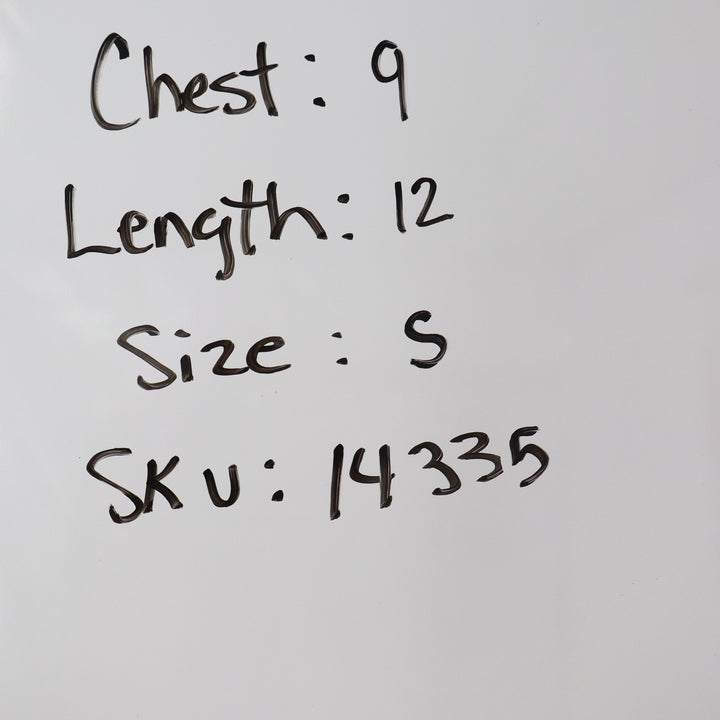 Chest: 9
Length: 12
Size: S
SKU: 14335